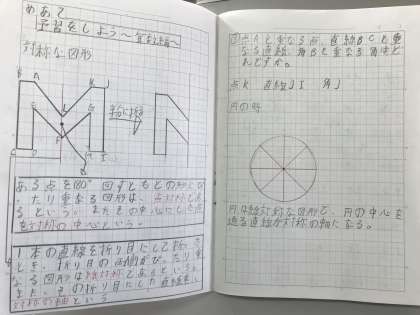 めあて
予習をしよう～算数編～
対称な図形
ある点を180°回すともとの形にぴ
ったり重なる図形は、点対称で
あるという。またその中心にした点
を対称の中心という。
1本の直線を折り目にして折った
とき、折り目の両側がぴったり重
なる図形は線対称であるという。
また、その折り目にした直線を
対称の軸という
点Aと重なる点、直線BCと重
なる直線、角Bと重なる角はど
れですか。
点K 直線JI 角J
円の時
円は線対称な図形で、円の中心を
通る直線が対称の軸になる。